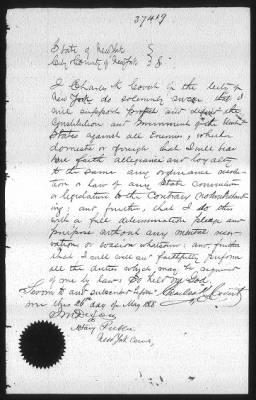 37419
State of New York }
City & County of New York } SS
I Charles K. of the City of
New York do solemnly swear that I
will support protect and defend the
Constitution and Government of the United
States against all Enemies, whether
domestic or foreign that I will bear
true faith allegiance and loyalty
to the same any ordinance resolu-
tion or law of any State convention
or legislature to the contrary notwithstand-
ing, and further, that I do this
with a full determination pledge and
purpose without any mental reser-
vation or evasion whatsoever, and further
that I will well and faithfully perform
all the duties which may be required
of me by law. So help me God
Sworn to and subscribed before Charles K.
me this 26th day of May 186
Notary Public
New York County